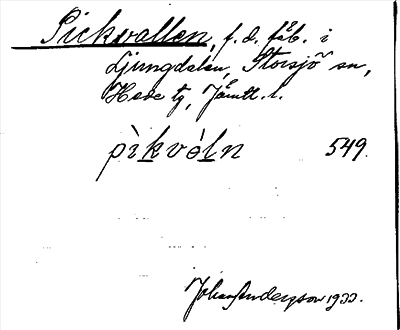 Pickvallen, f. d. fäb. i
Ljungdalen, Storsjö sn,
Hede tg, Jämtl. l.
pìkvòln 549.
Johan Anderson 1933.